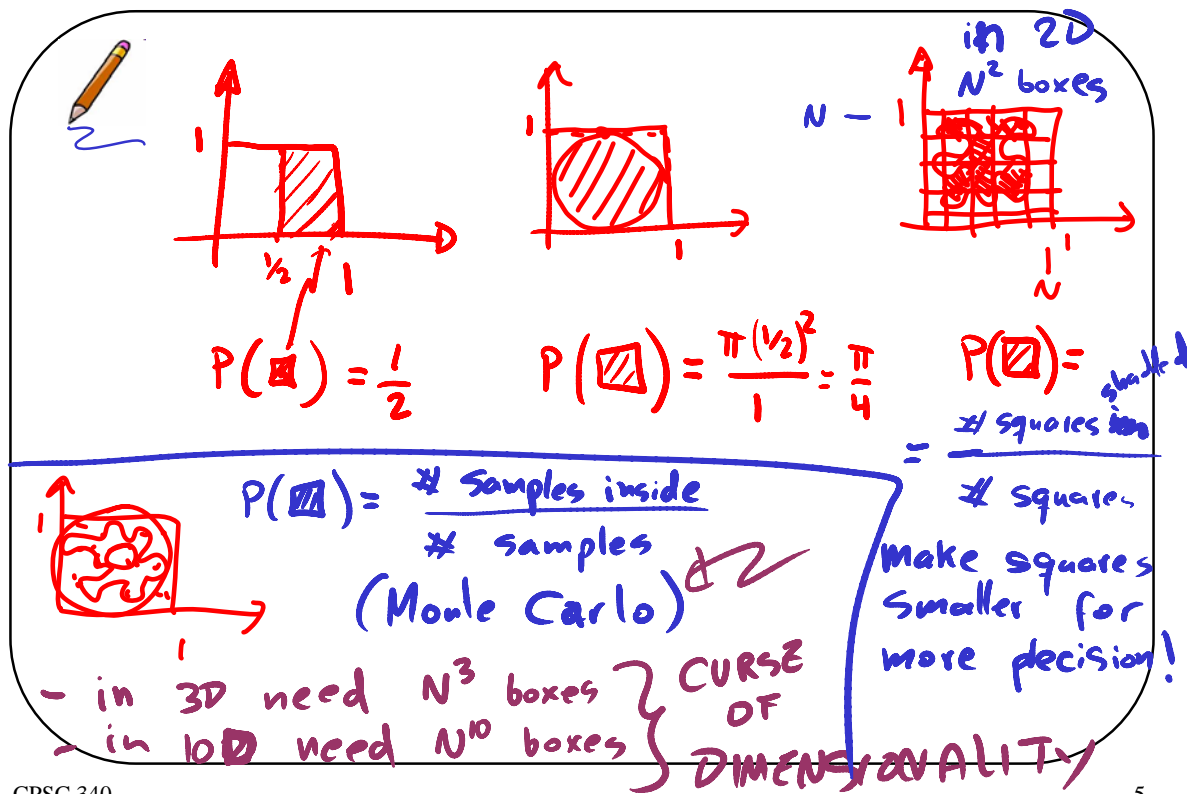 in 2D
N² boxes
N –
1
1
1
1/2
1
1
1
N
P( ) = 1/2
P( ) = π(1/2)²/1 = π/4
P( ) =
= # squares shaded
# squares
make squares
smaller for
more precision!
1
P( ) = # samples inside
# samples
(Monte Carlo)
1
- in 3D need N³ boxes
- in 10D need N¹⁰ boxes
CURSE
OF
DIMENSIONALITY
CPSC 340
5